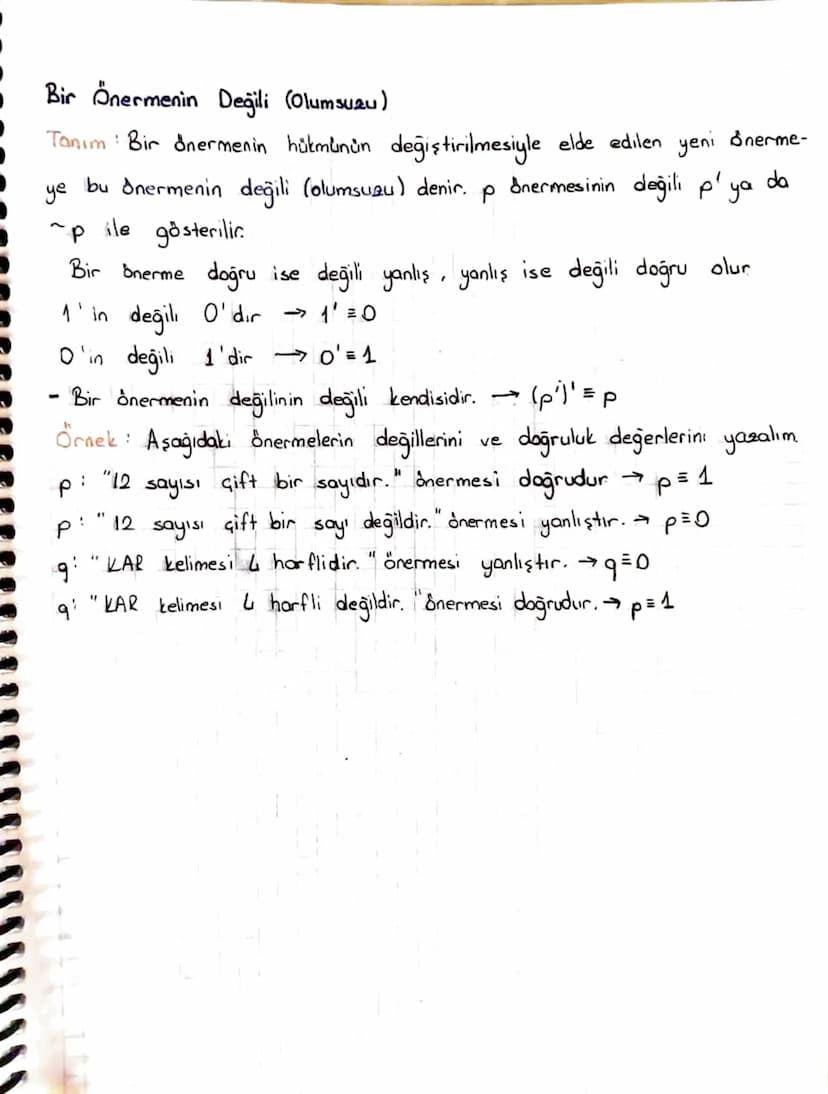 Bir Önermenin Değili (Olumsuzu)
Tanım : Bir önermenin hükmünün değiştirilmesiyle elde edilen yeni önerme-
ye bu önermenin değili (olumsuzu) denir. p önermesinin değili p' ya da
~p ile gösterilir.
Bir önerme doğru ise değili yanlış, yanlış ise değili doğru olur
1'in değili 0'dır → 1' ≡ 0
0'in değili 1'dir → 0' ≡ 1
- Bir önermenin değilinin değili kendisidir. → (p')' ≡ p
Örnek : Aşağıdaki önermelerin değillerini ve doğruluk değerlerini yazalım
p: "12 sayısı çift bir sayıdır." önermesi doğrudur → p ≡ 1
p: "12 sayısı çift bir sayı değildir." önermesi yanlıştır. → p ≡ 0
q: "KAR kelimesi 4 harflidir." önermesi yanlıştır. → q ≡ 0
q: "KAR kelimesi 4 harfli değildir." önermesi doğrudur. → p ≡ 1